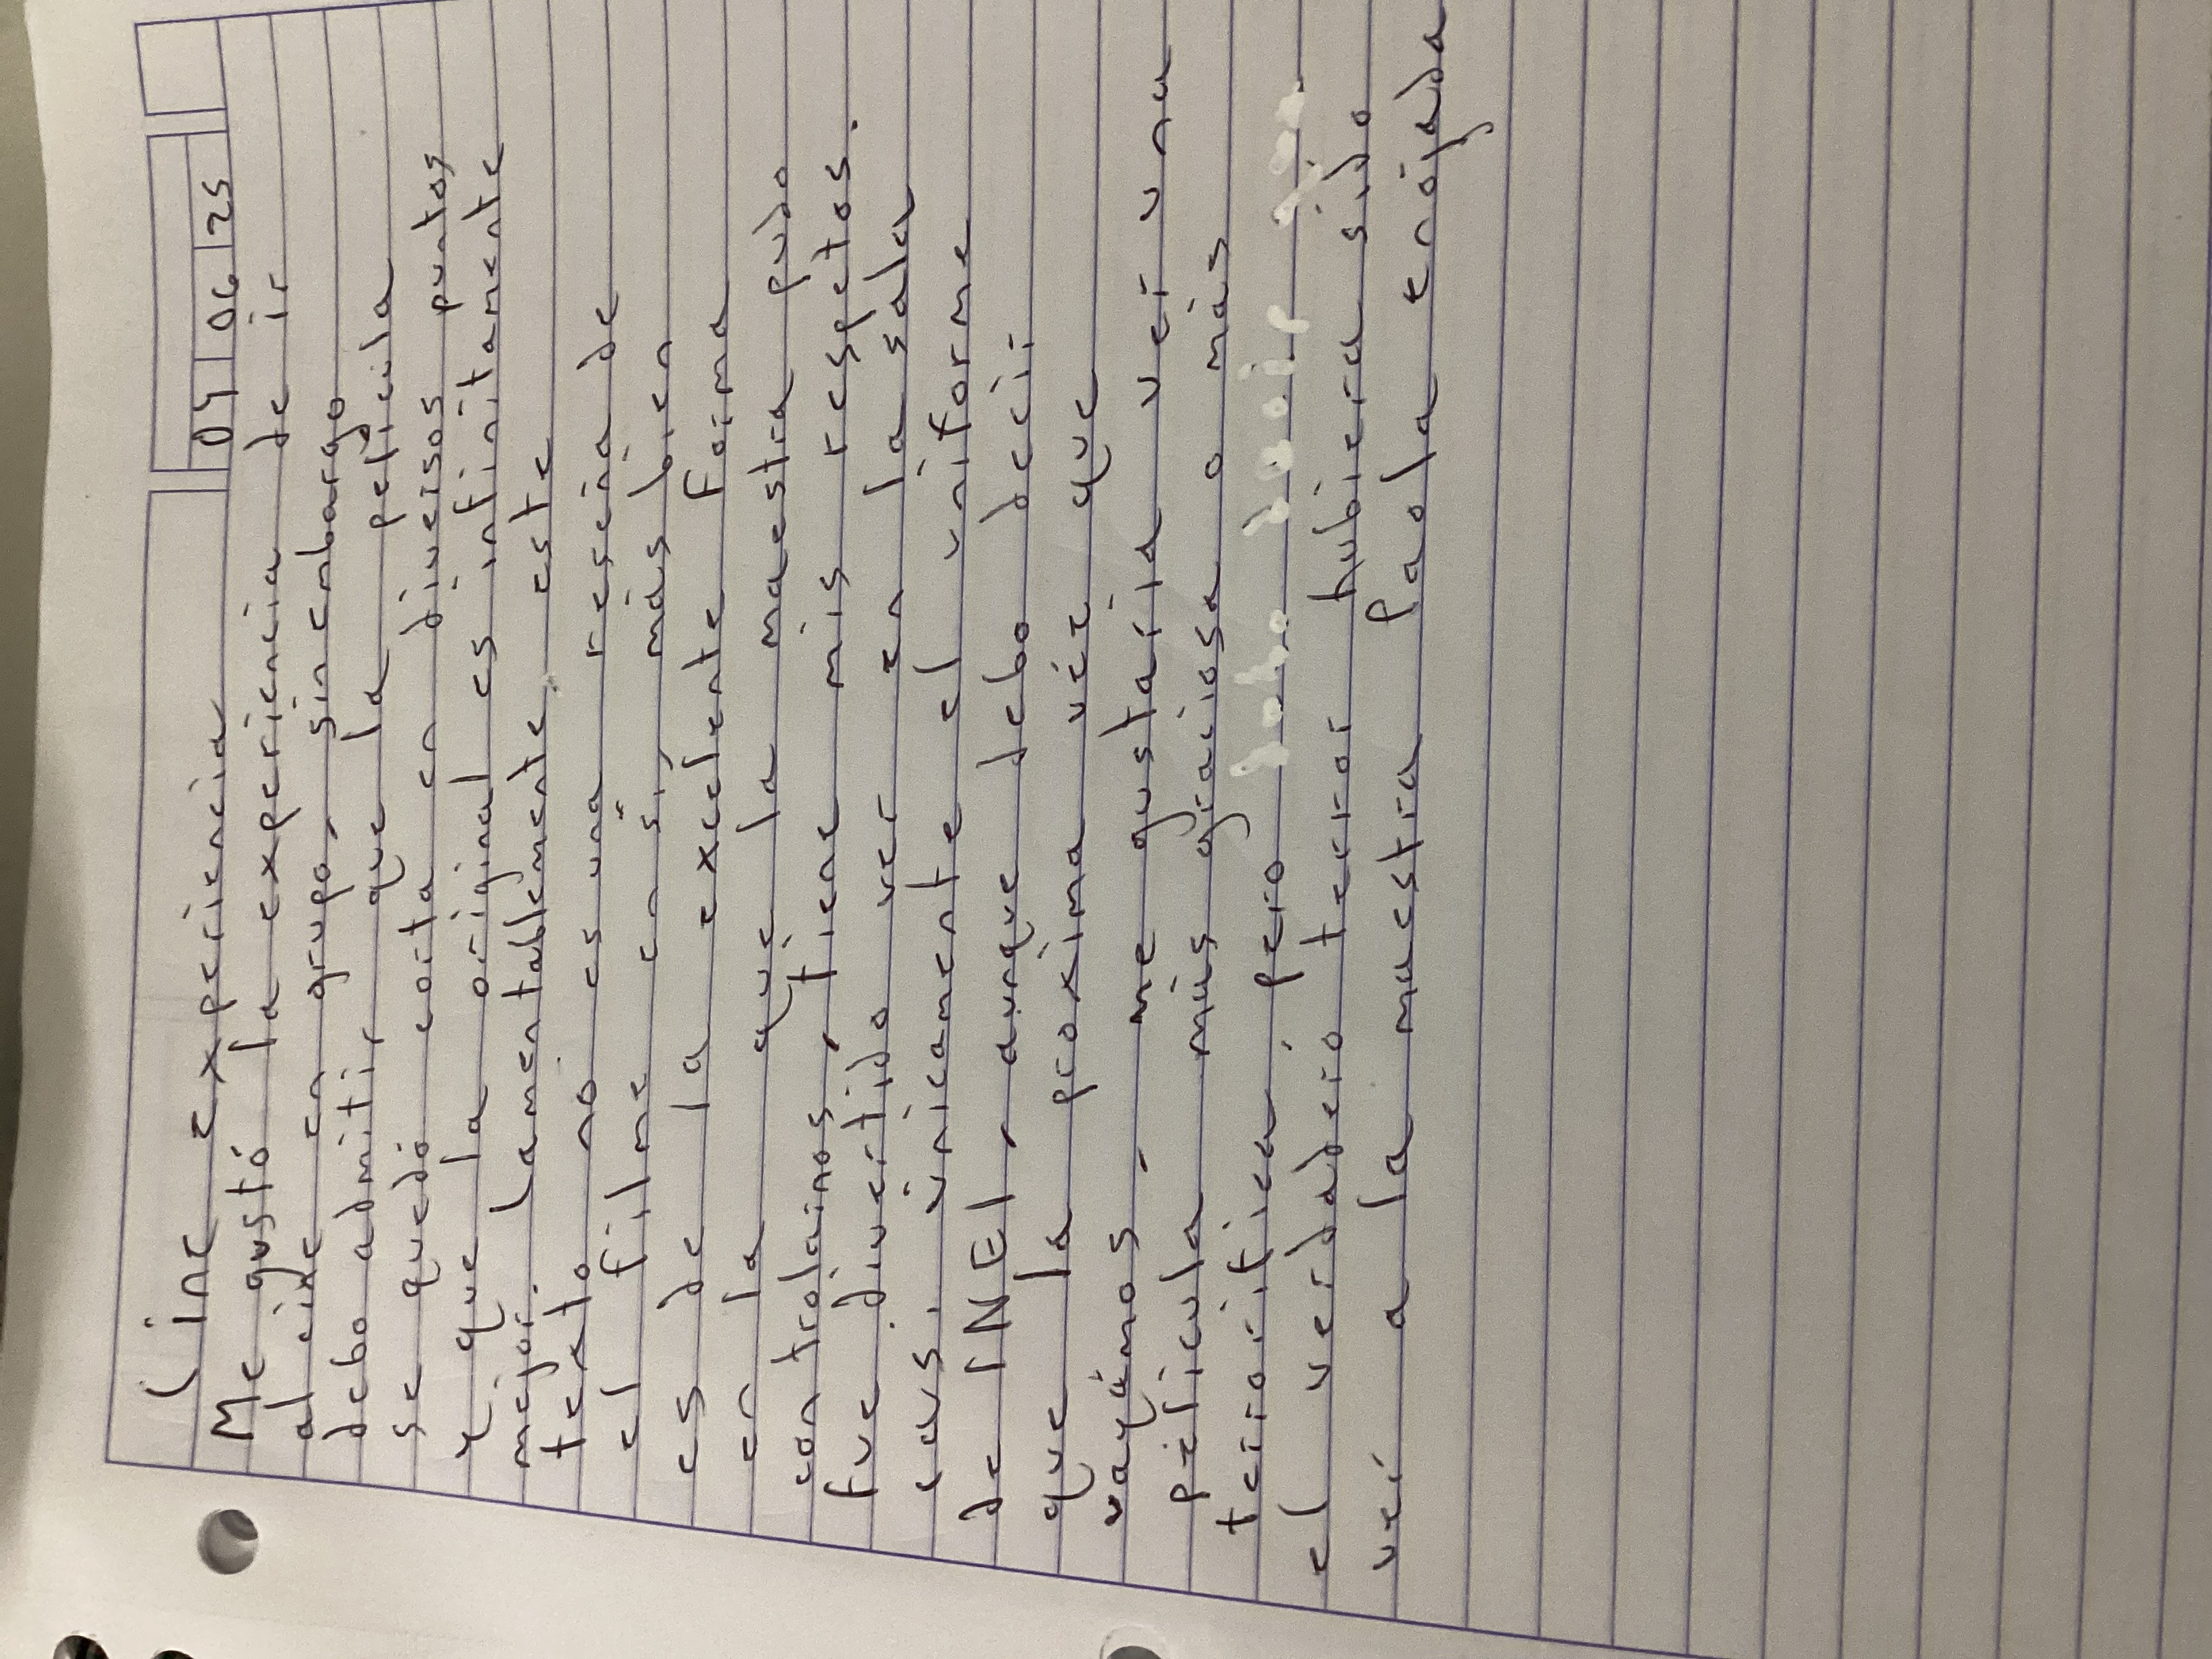 04 06 25
Cine experiencia
Me gustó la experiencia de ir
al cine en grupo, sin embargo
debo admitir que la película
se quedó corta en diversos puntos
y que la original es infinitamente
mejor. Lamentablemente, este
texto no es una reseña de
el filme en sí, más bien
es de la excelente forma
en la que la maestra pudo
controlarnos, tiene mis respetos.
fue divertido ver en la sala
casi únicamente el uniforme
de INEI, aunque debo decir
que la proxima vez que
vayámos, me gustaría ver una
película más graciosa o más
terrorifica, pero debo decir que
el verdadero terror hubiera sido
ver a la maestra Paola enojada